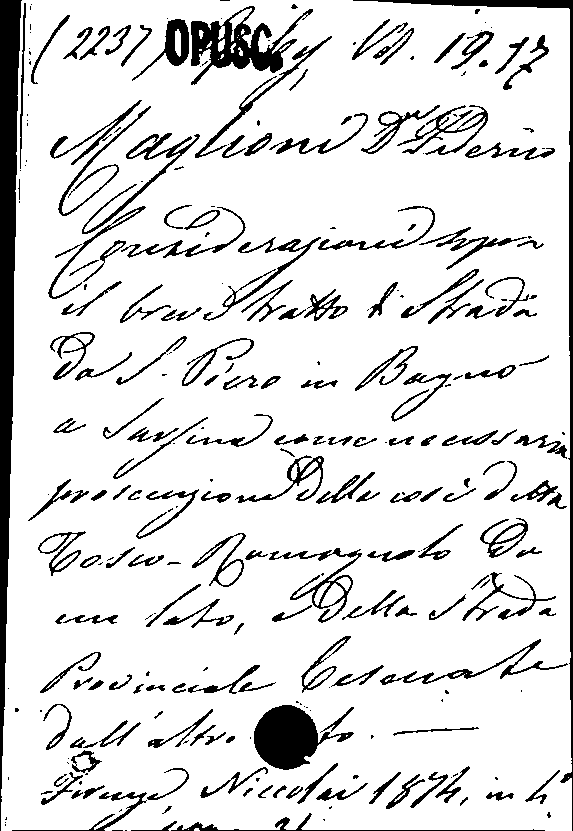 (2237) OPUSC. Vol. 19.17
Maglioni Dr Federico
Considerazioni sopra
il breve tratto di Strada
da S. Piero in Bagno
a Sarsina come necessaria
prosecuzione della così detta
Tosco-Romagnola da
un lato, e della Strada
Provinciale Cesenate
dall'altro lato. —
Firenze, Niccolai 1874, in 4°